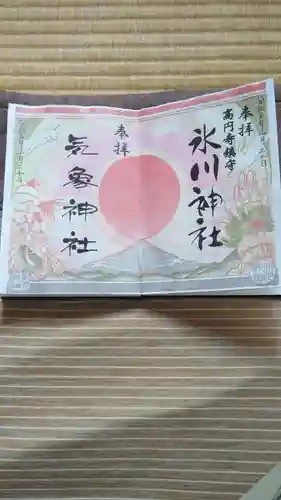 奉拝
高円寺鎮守
氷川神社
奉拝
気象神社